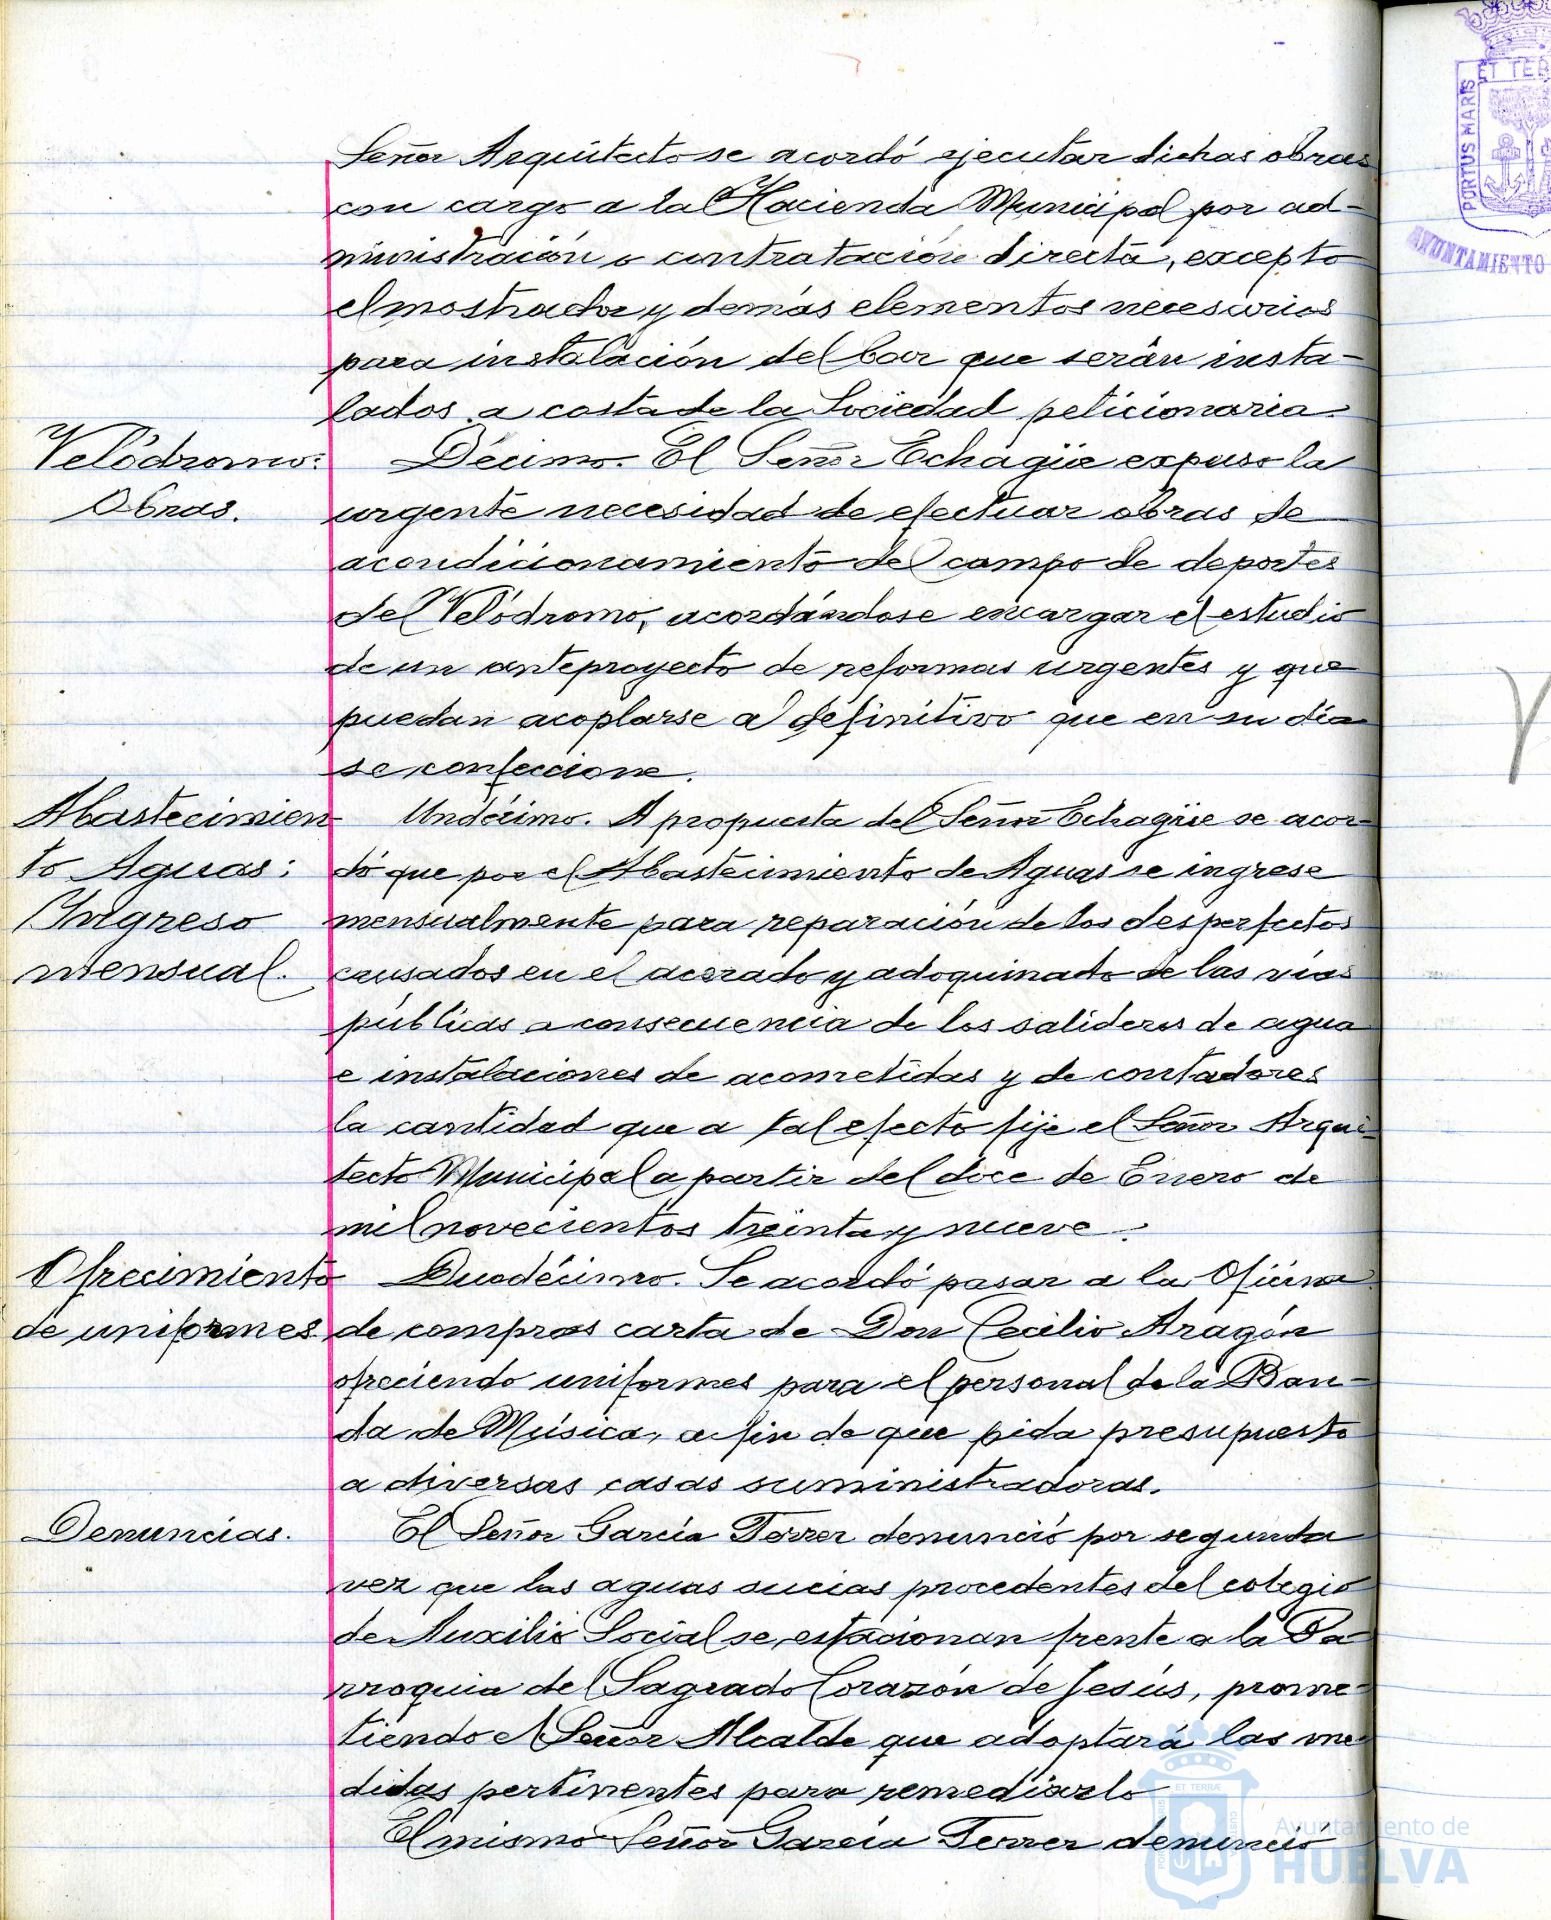 Señor Arquitecto se acordó ejecutar dichas obras
con cargo a la Hacienda Municipal por ad-
ministración o contratación directa, excepto
el mostrador y demás elementos necesarios
para instalación del bar que serán insta-
lados a costa de la Sociedad peticionaria.
Velódromo:
Obras.
Décimo. El Señor Echagüe expuso la
urgente necesidad de efectuar obras de
acondicionamiento del campo de deportes
del Velódromo, acordándose encargar el estudio
de un anteproyecto de reformas urgentes y que
puedan acoplarse al definitivo que en su día
se confeccione.
Abastecimien
to Aguas:
Ingreso
mensual.
Undécimo. A propuesta del Señor Echagüe se acor-
dó que por el Abastecimiento de Aguas se ingrese
mensualmente para reparación de los desperfectos
causados en el acerado y adoquinado de las vías
públicas a consecuencia de los salideros de agua
e instalaciones de acometidas y de contadores
la cantidad que a tal efecto fije el Señor Arqui-
tecto Municipal a partir del doce de Enero de
mil novecientos treinta y nueve.
Ofrecimiento
de uniformes
Duodécimo. Se acordó pasar a la Oficina
de compras carta de Don Cecilio Aragón
ofreciendo uniformes para el personal de la Ban-
da de Música, a fin de que pida presupuesto
a diversas casas suministradoras.
Denuncias.
El Señor García Terrer denunció por segunda
vez que las aguas sucias procedentes del colegio
de Auxilio Social se estacionan frente a la Pa-
rroquia del Sagrado Corazón de Jesús, prome-
tiendo el Señor Alcalde que adoptará las me-
didas pertinentes para remediarlo
El mismo Señor García Terrer denunció
PORTUS MARIS
ET TER
AYUNTAMIENTO
ET TERRÆ
Ayuntamiento de
HUELVA